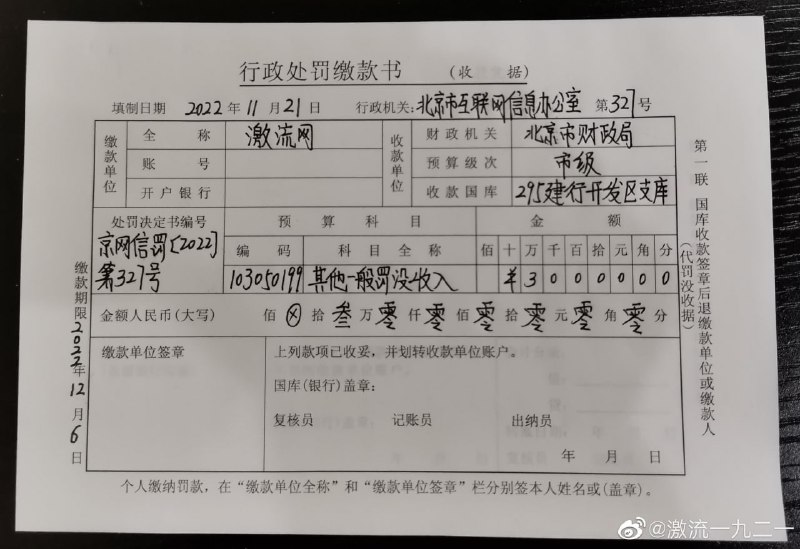 行政处罚缴款书 (收 据)
填制日期 2022年11月21日 行政机关:北京市互联网信息办公室 第327号
缴款单位 全 称 激流网 收款单位 财政机关 北京市财政局
账 号 预算级次 市级
开户银行 收款国库 295建行开发区支库
处罚决定书编号 预 算 科 目 金 额
京网信罚[2022]第327号 编 码 科 目 全 称 佰 十 万 千 百 拾 元 角 分
103050199 其他一般罚没收入 ¥ 3 0 0 0 0 0 0
金额人民币(大写) 佰 ⊗ 拾 叁 万 零 仟 零 佰 零 拾 零 元 零 角 零 分
缴款单位签章 上列款项已收妥,并划转收款单位账户。
国库(银行)盖章:
复核员 记账员 出纳员
年 月 日
个人缴纳罚款,在“缴款单位全称”和“缴款单位签章”栏分别签本人姓名或(盖章)。
缴款期限2022年12月6日
第一联 国库收款签章后退缴款单位或缴款人
(代罚没收据)
@激流一九二一